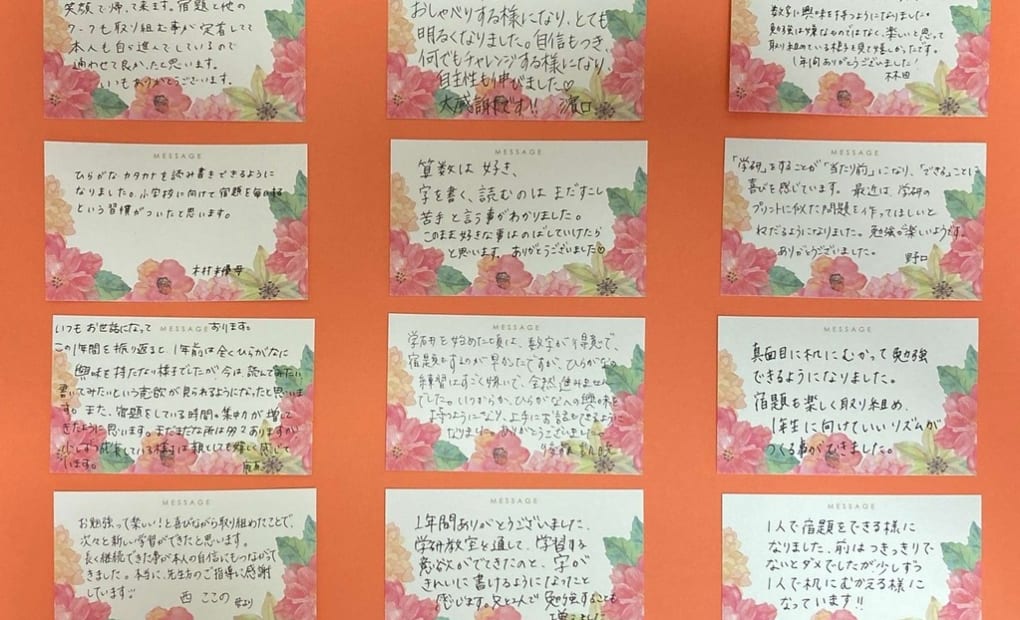 笑顔で帰って来ます。宿題と他の
ワークも取り組む事が定着してて
本人も自ら進んでしているので
通わせて良かったと思います。
いつもありがとうございます。
おしゃべりする様になり、とても
明るくなりました。自信もつき、
何でもチャレンジする様になり、
自主性も伸びました♡
大感謝です!! 濵口
数字に興味を持つようになりました。
勉強は嫌なものではなく、楽しいと思って
取り組めている様子を見て嬉しかったです。
1年間ありがとうございました!
MESSAGE
ひらがな カタカナを読み書きできるように
なりました。小学校に向けて宿題を毎日する
という習慣がついたと思います。
MESSAGE
算数は 好き、
字を書く、読むのは まだすこし
苦手と言う事がわかりました。
このまま好きな事はのばしていけたら
と思います。ありがとうございました♡
MESSAGE
「学研」をすることが「当たり前」になり、「できる」ことに
喜びを感じています。最近は、学研の
プリントに似た問題を作ってほしいと
ねだるようになりました。勉強が楽しいようです。
ありがとうございました。 野口
MESSAGE
いつも お世話になって おります。
この1年間を振り返ると、1年前は全くひらがなに
興味を持たない様子でしたが、今は、読んでみたい
書いてみたいという意欲が見られるようになったと思いま
す。また、宿題をしている時間。集中力が増して
きたように思います。まだまだな所は多々ありますが
少しずつ成長している様子は親としても嬉しく感じて
います。
MESSAGE
学研を始めた頃は、数字が得意で、
宿題もすすむのが早かったですが、ひらがなの
練習はすごく嫌いで、全然進みません
でした。いつからか、ひらがなへの興味を
持つようになり、上手にお話ができるように
なりました。ありがとうございました。
MESSAGE
真面目に机にむかって勉強
できるようになりました。
宿題も楽しく取り組め、
1年生に向けていいリズムが
つくる事ができました。
MESSAGE
お勉強って楽しい!と喜びながら取り組めたことで、
次々と新しい学習ができたと思います。
長く継続できた事が本人の自信にもつながって
きました。本当に、先生方のご指導に感謝
しています。
西 ここの 母より
MESSAGE
1年間ありがとうございました。
学研教室を通して、学習する
意欲がでてきたのと、字が
きれいに書けるようになったと
感じます。兄と2人で 勉強することも
増えました
MESSAGE
1人で宿題をできる様に
なりました。前はつきっきりで
ないとダメでしたが少しずつ
1人で机にむかえる様に
なっています!!